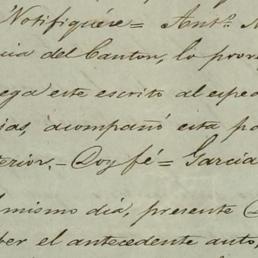 Notifiquese = Antº.
cia del Canton, lo prov
ega este escrito al esped
ias, acompañó esta po
terior.- Doy fé = Garcia
mismo dia, presente
ber el antecedente auto,